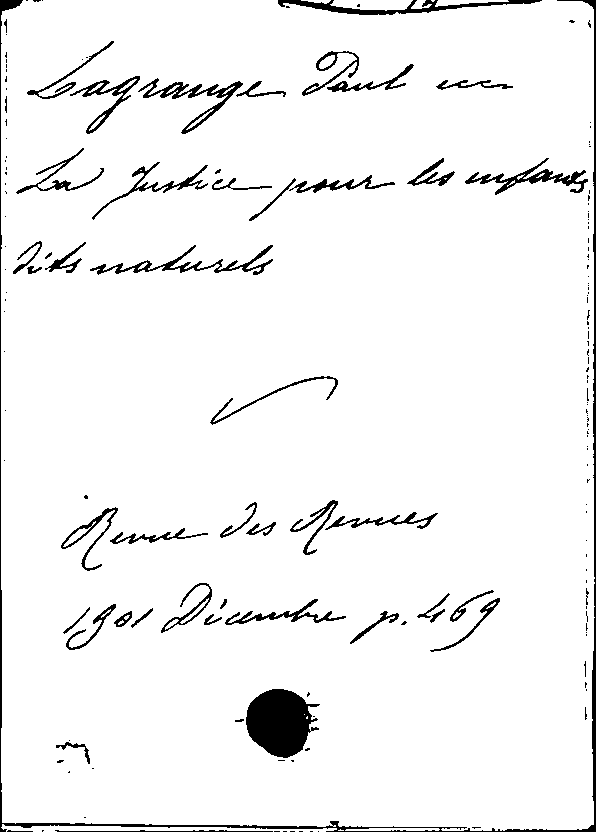 Lagrange Paul
La Justice pour les enfants
dits naturels
Revue des Revues
1901 Décembre p. 469